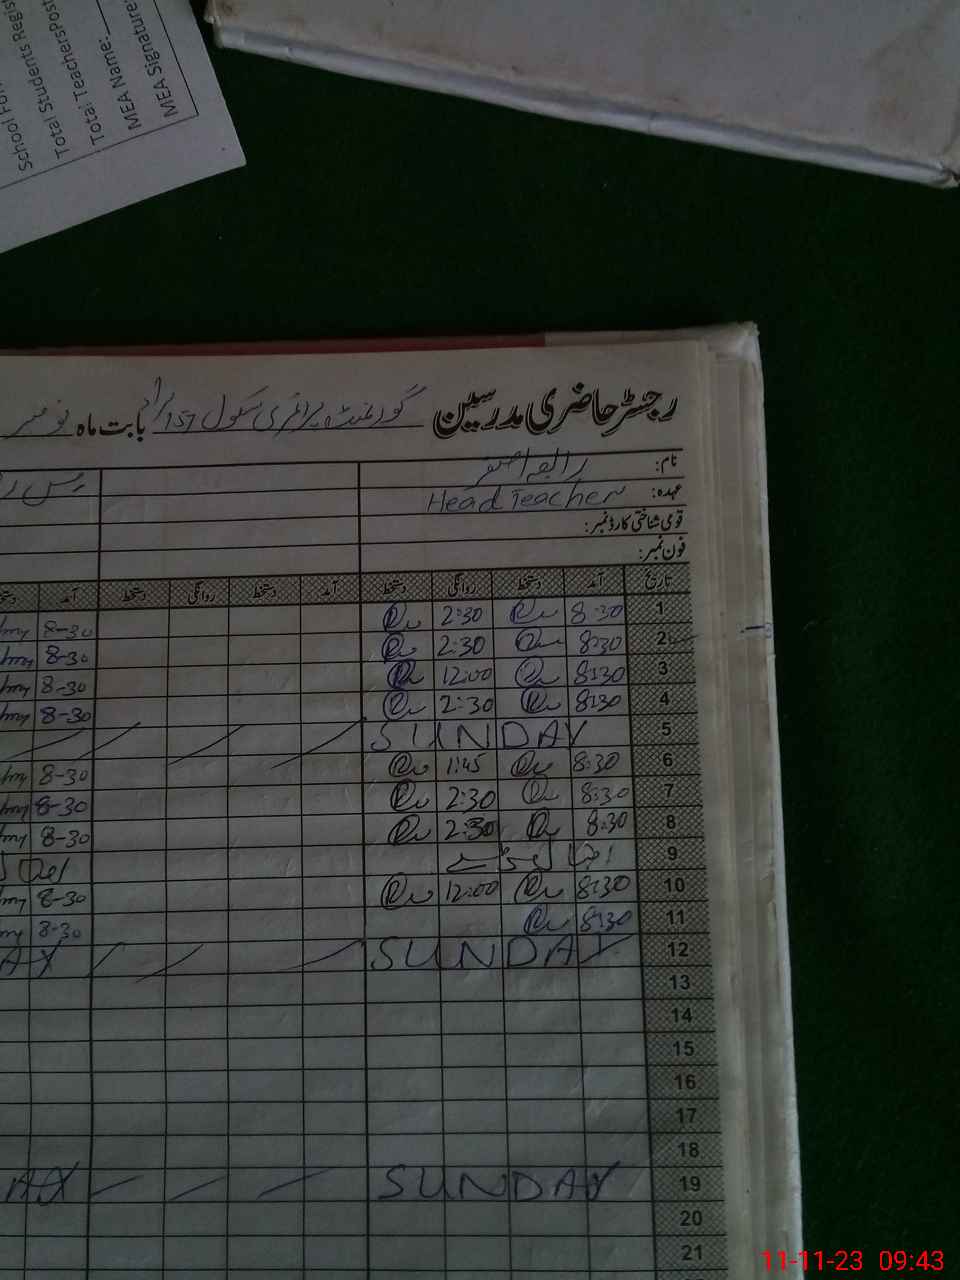 School For
Total Students Regist
Total TeachersPost
MEA Name:
MEA Signature:
رجسٹر حاضری مدرسین گورنمنٹ پرائمری سکول 157 بابت ماہ نومبر
نام:
عہدہ: Head Teacher
قومی شناختی کارڈ نمبر:
فون نمبر:
تاریخ آمد دستخط روانگی دستخط آمد دستخط روانگی دستخط آمد دستخط
1 8:30 2:30 8-30
2 8:30 2:30 8-30
3 8:30 12:00 8-30
4 8:30 2:30 8-30
5 SUNDAY
6 8:30 1:45 8-30
7 8:30 2:30 8-30
8 8:30 2:30 8-30
9
10 8:30 12:00 8-30
11 8:30 8-30
12 SUNDAY AY
13
14
15
16
17
18
19 SUNDAY AY
20
21
11-11-23 09:43